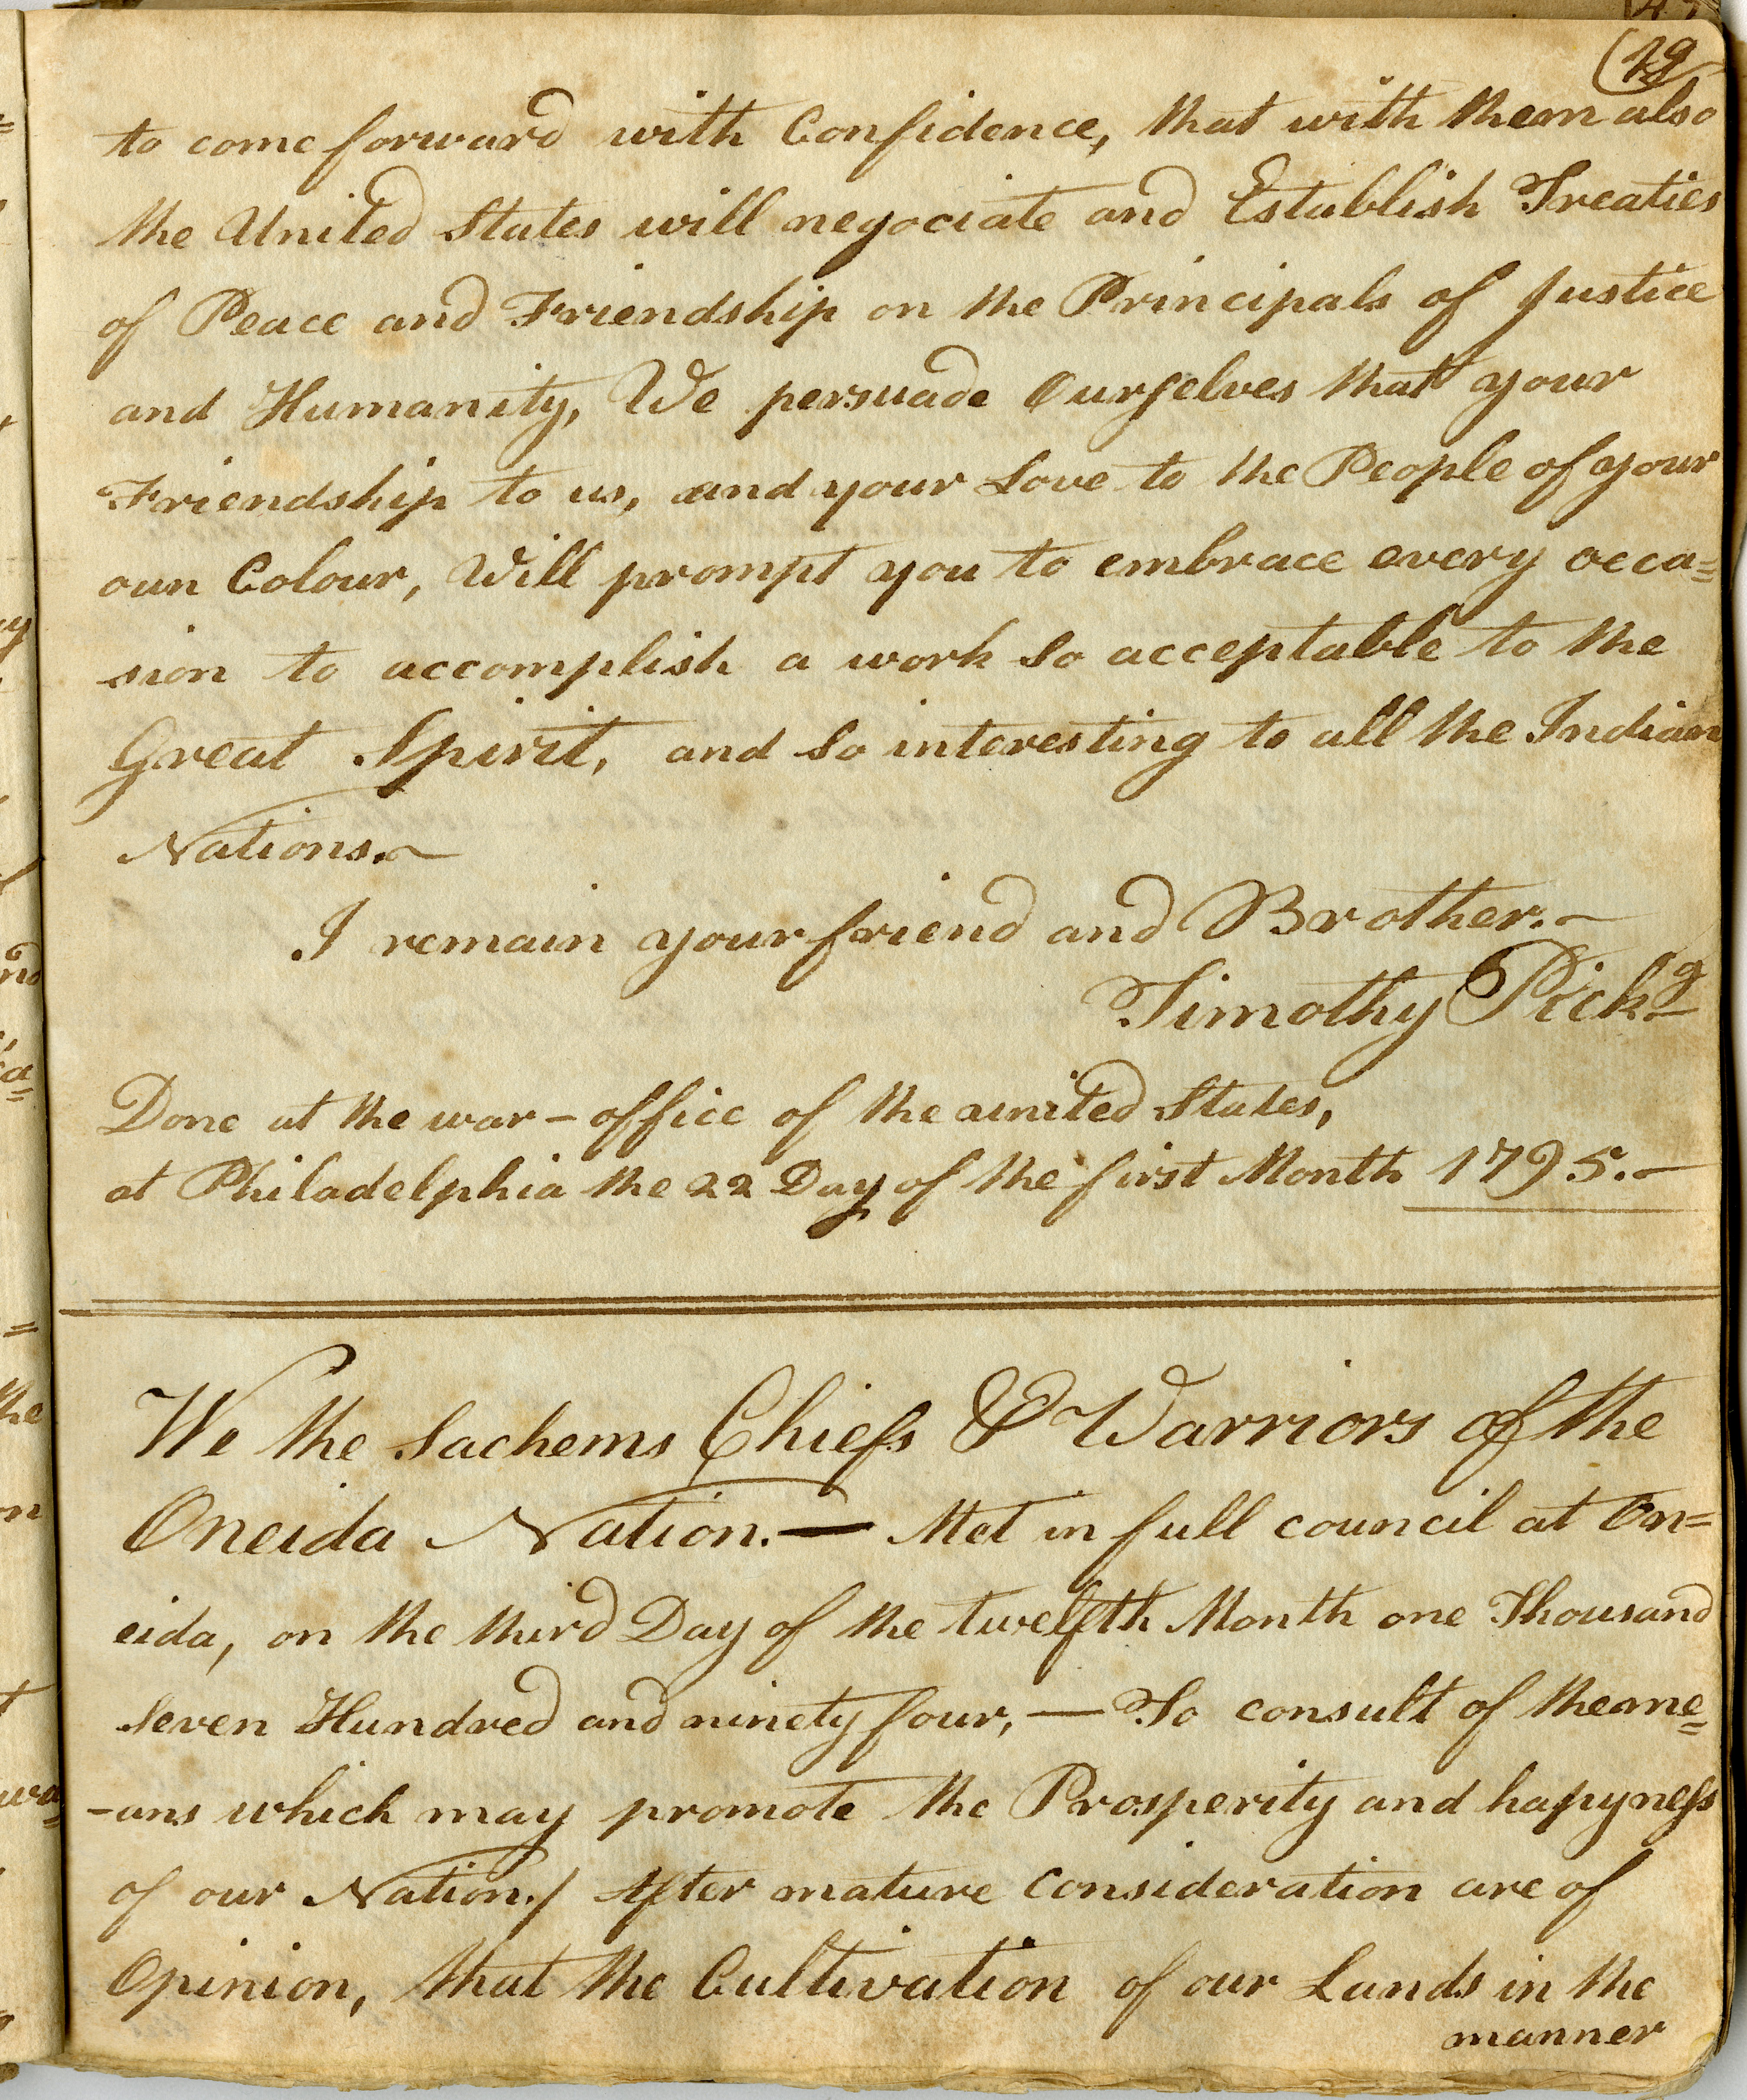 (19
to come forward with Confidence, that with them also
the United States will negociate and Establish Treaties
of Peace and Friendship on the Principals of Justice
and Humanity, We persuade Ourselves that your
Friendship to us, and your Love to the People of your
oun Colour, Will prompt you to embrace every occa=
sion to accomplish a work so acceptable to the
Great Spirit, and so interesting to all the Indian
Nations.
I remain your friend and Brother.
Timothy Pickg
Done at the war-office of the united States,
at Philadelphia the 22 Day of the first Month 1795.
We the Sachems Chiefs & Warriors of the
Oneida Nation.— Met in full council at On=
eida, on the third Day of the twelfth Month one Thousand
Seven Hundred and ninety four, — To consult of the me=
-ans which may promote the Prosperity and hapyness
of our Nation./ After mature Consideration are of
Opinion, that the Cultivation of our Lands in the
manner